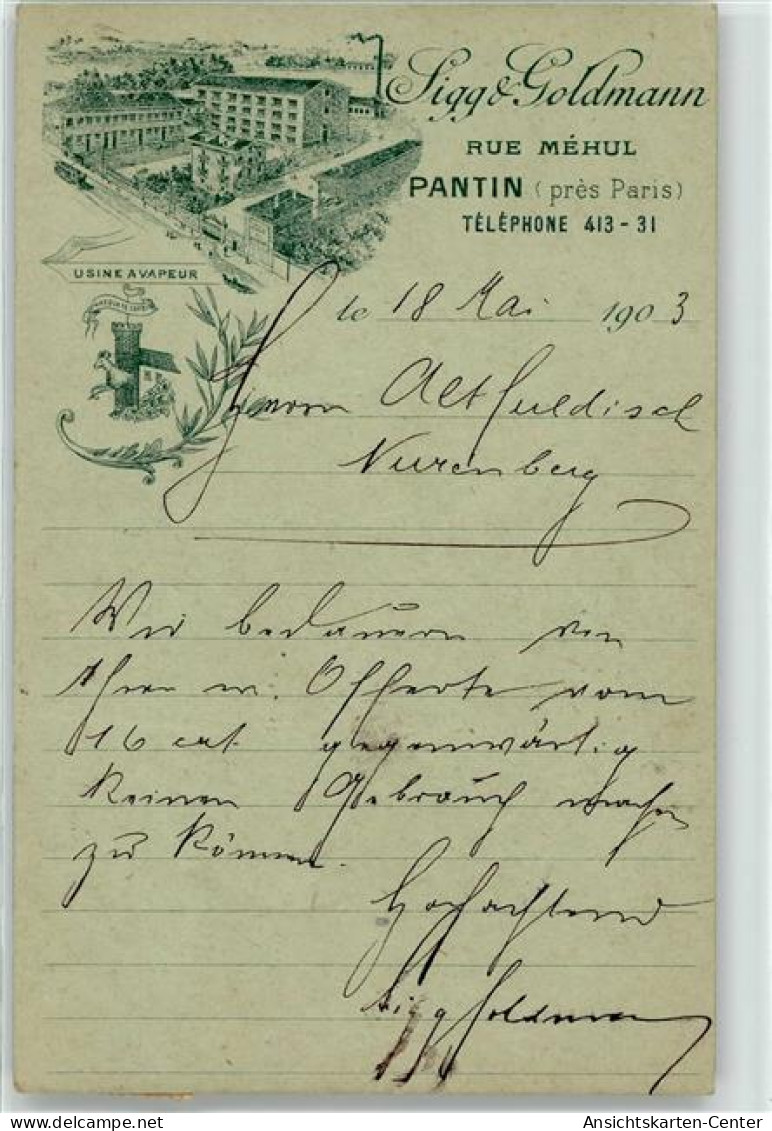 Sigg & Goldmann
RUE MÉHUL
PANTIN (près Paris)
TÉLÉPHONE 413-31
USINE A VAPEUR
le 18 Mai 1903
Herrn
Nurenberg
Wir bedauern von
Ihrer w. Offerte vom
16 crt. gegenwärtig
keinen Gebrauch machen
zu können.
Hochachtend
Sigg Goldmann
www.delcampe.net
Ansichtskarten-Center